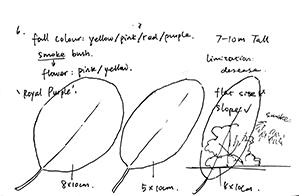 6.
fall colour: yellow/pink/red/purple.
smoke bush.
flower: pink/yellow.
'Royal Purple'
7-10m Tall
limitation:
desease
flat sides ✓
slopes ✓
smoke
8x10cm
5x10cm
8x10cm